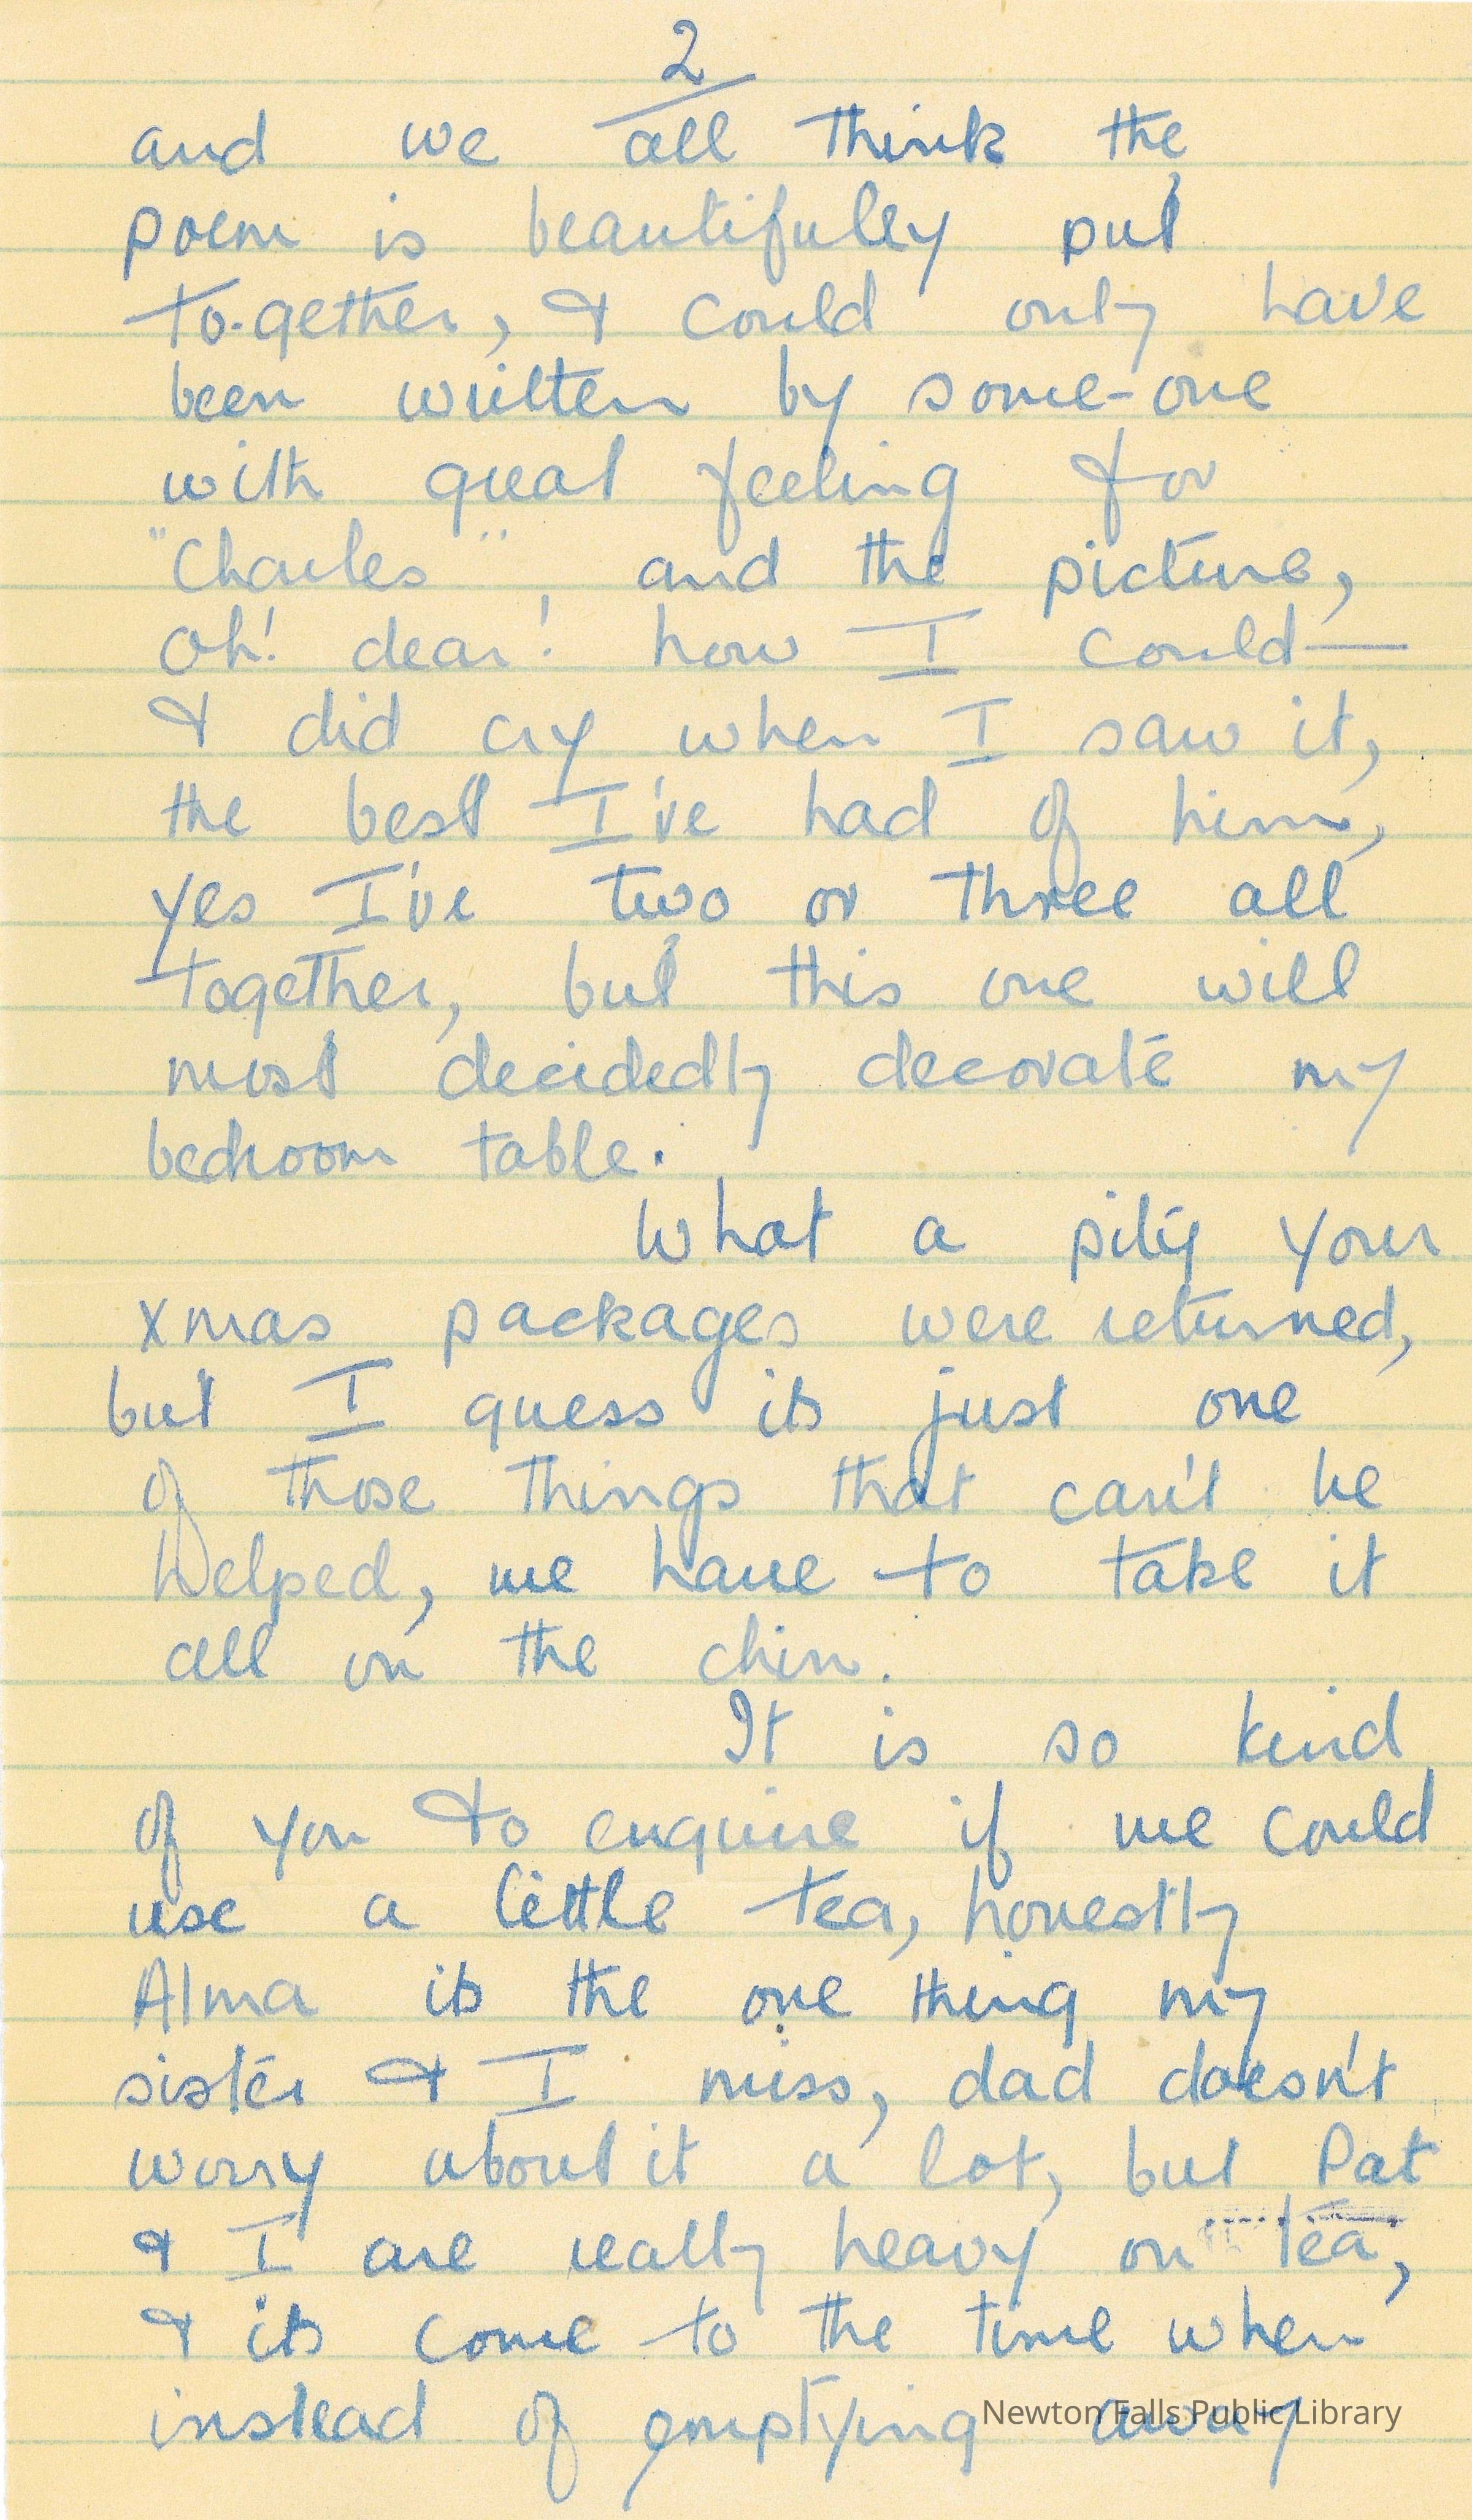 2
and we all think the
poem is beautifully put
to-gether, & could only have
been written by some-one
with great feeling for
"Charles", and the picture,
Oh! dear! how I could—
& did cry when I saw it,
the best I've had of him,
yes I've two or three all
together, but this one will
most decidedly decorate my
bedroom table.
What a pity your
xmas packages were returned,
but I guess its just one
of those things that can't be
helped, we have to take it
all on the chin.
It is so kind
of you to enquire if we could
use a little tea, honestly
Alma its the one thing my
sister & I miss, dad doesn't
worry about it a lot, but Pat
& I are really heavy on tea,
& its come to the time when
instead of emptying away
Newton Falls Public Library